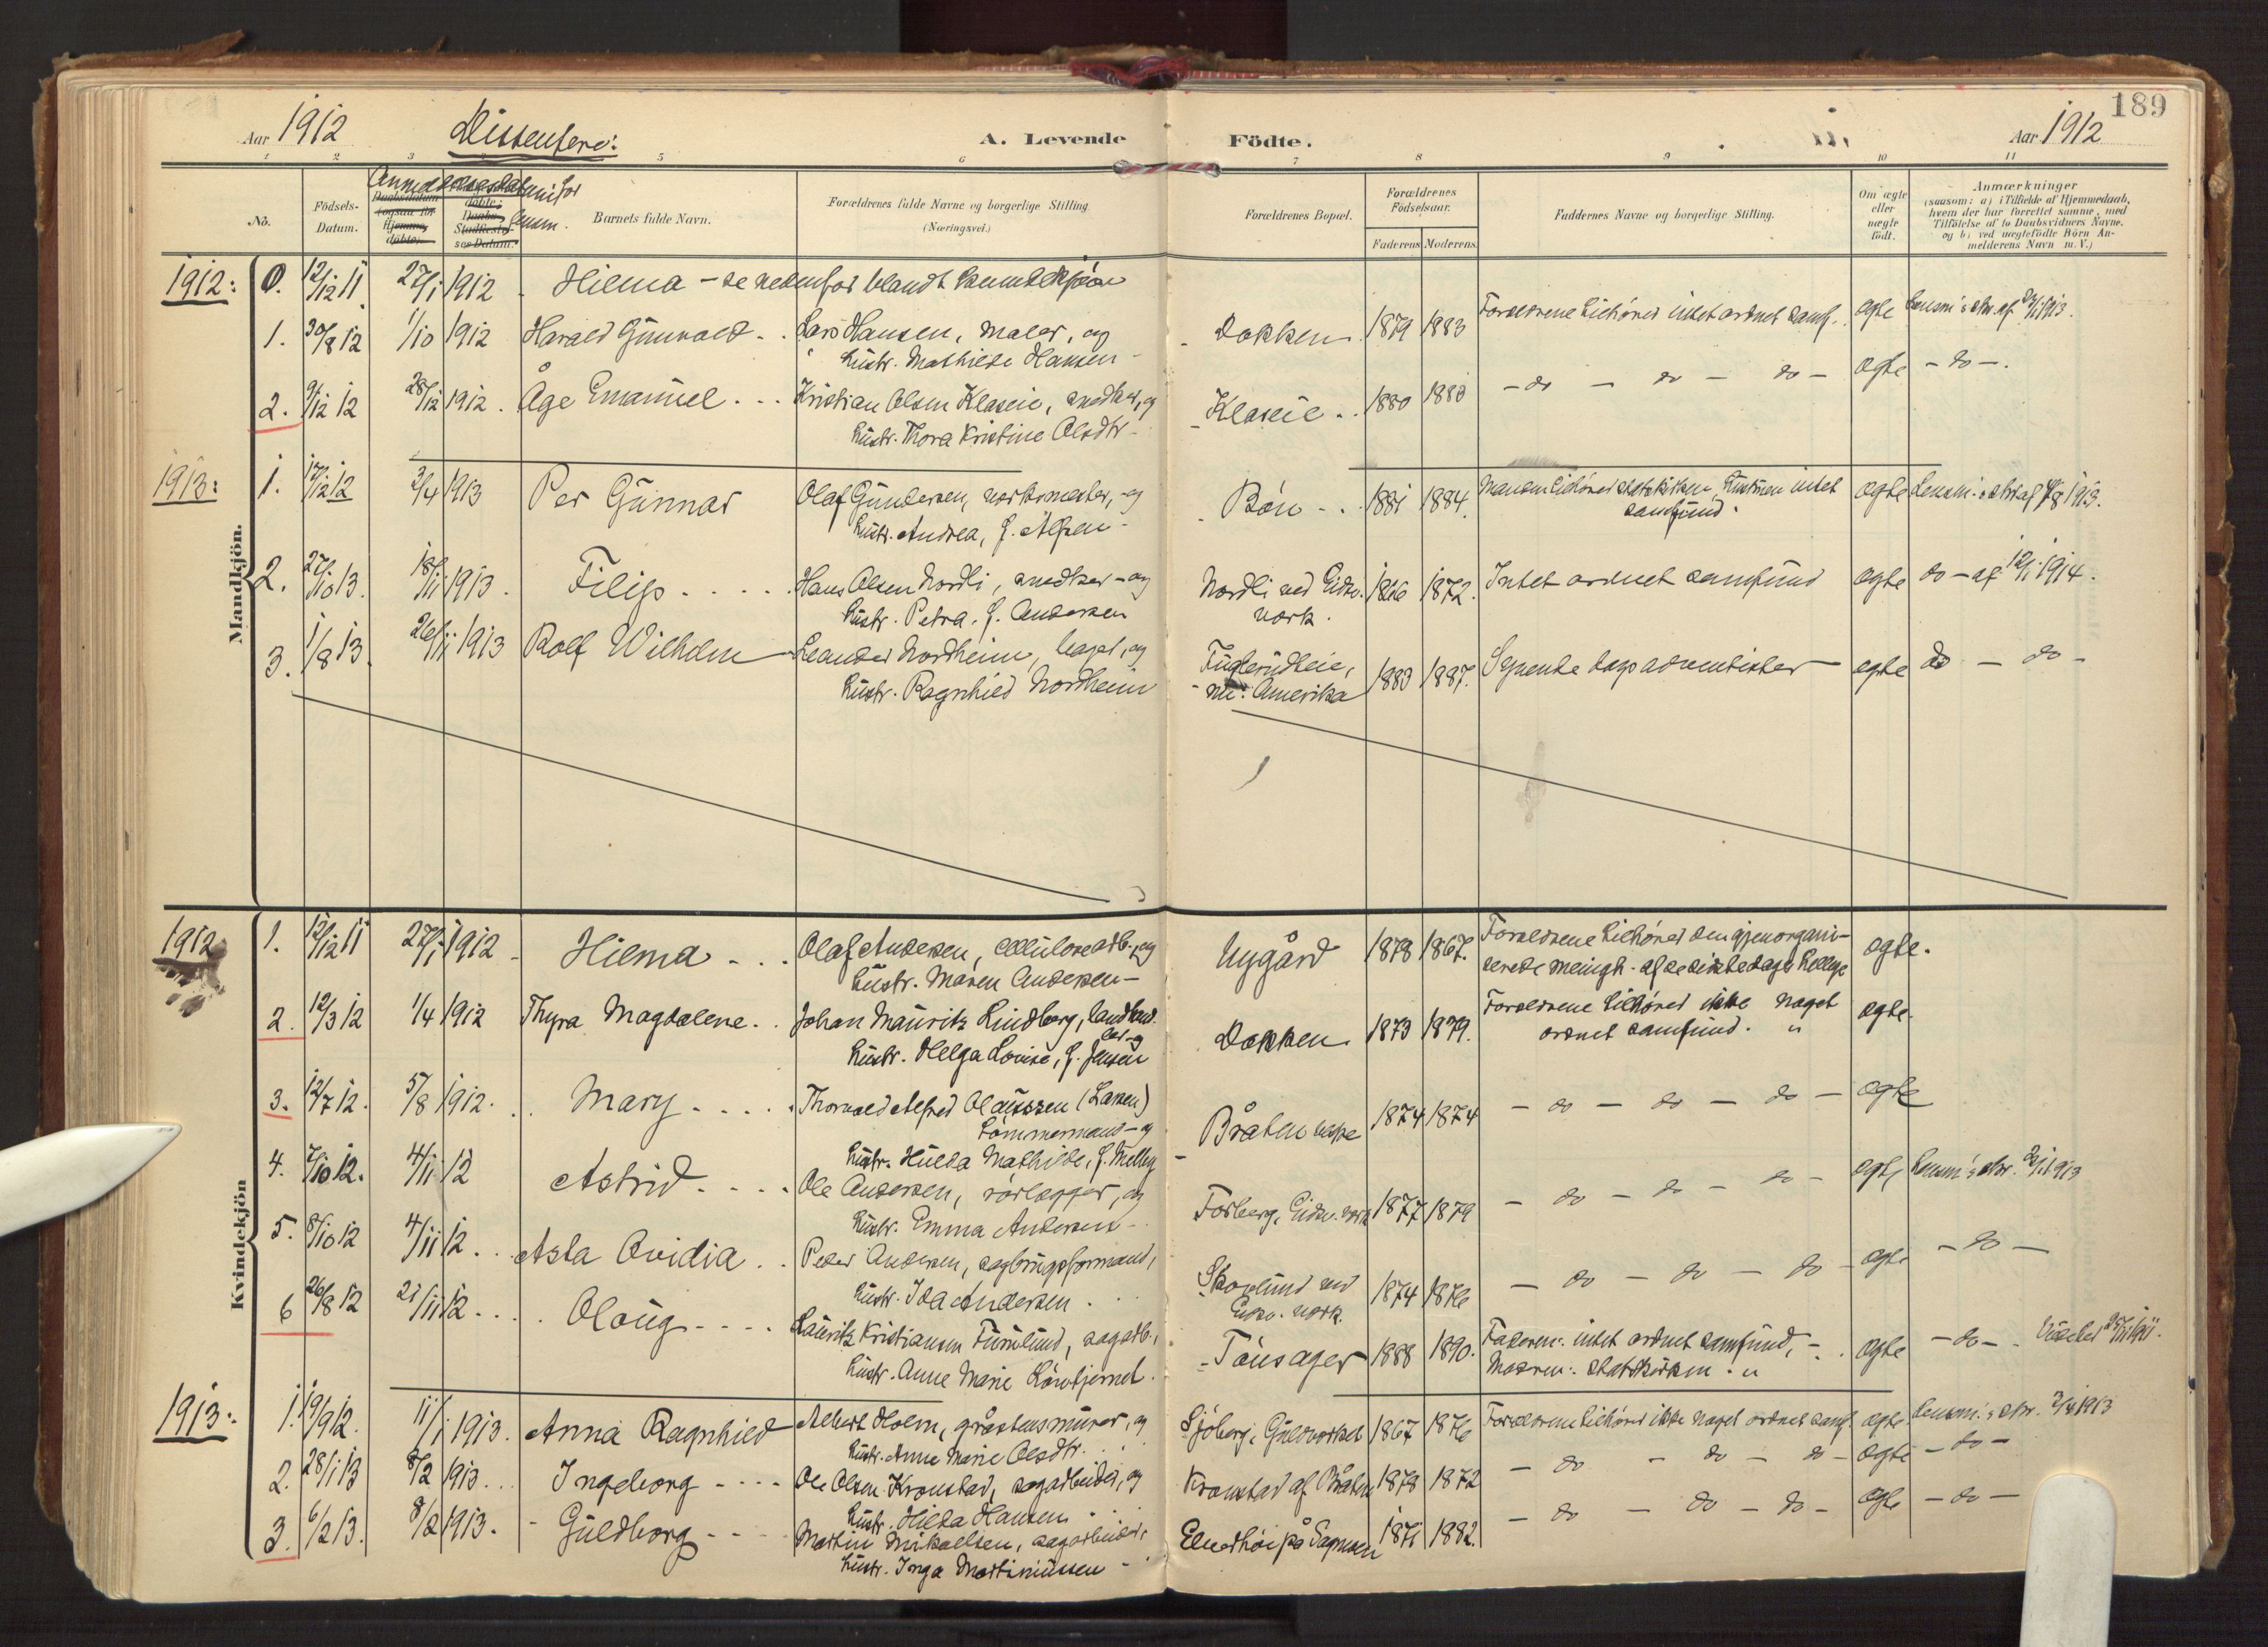 189
Aar 1912 Dissentere: A. Levende Födte. Aar 1912
1 2 3 5 6 7 8 9 10 11
No.
Födsels-
Datum.
Anmeldelsesdatum for
Daabsdatum
(ogsaa for
Hjemme-
döbte)
Barnets fulde Navn.
Forældrenes fulde Navne og borgerlige Stilling
(Næringsvei.)
Forældrenes Bopæl.
Forældrenes
Födselsaar.
Faderens Moderens
Faddernes Navne og borgerlige Stilling.
Om ægte
eller
uægte
födt.
Anmærkninger
(saasom: a) i Tilfælde af Hjemmedaab,
hvem der har forrettet samme, med
Tilföielse af to Daabsvidners Navne.
og b) ved uægtefödte Börn An-
melderens Navn m. V.)
Mandkjön.
1912: 0. 12/12 11 27/1 1912 Hilma - se nedenfor blandt kvindekjön
1. 30/8 12 1/10 1912 Harald Gunvald Lars Hansen, maler, og Dokken 1879 1883 Forældrene tilhörer intet ordnet samf. ægte
hustr. Mathilde Hansen
2. 9/12 12 28/12 1912. Åge Emanuel Kristian Olsen Klaseie, snedker, og Klaseie 1880 1880 - do - do - do - ægte - do -.
hustr. Thora Kristine Olsdtr.
1913: 1. 12/12 12 3/4 1913 Per Gunnar Olaf Gundersen, verksmester, og Bön 1881 1884. Manden tilhörer statskirken, hustruen intet ægte
samfund.
hustr. Andrea, f. Alfsen
2. 27/10 13. 18/11 1913. Filip Hans Olsen Nordli, snedker - og Nordli ved Eidsv. 1866 1872. Intet ordnet samfund ægte do - af 12/1 1914.
hustr. Petra. f. Andersen verk.
3. 1/8 13. 26/11 1913 Rolf Wilhelm Leander Nordheim, bager, og Fuglerudleie, 1883 1887. Syvende dags adventister ægte do - do -
hustr. Ragnhild Nordheim nu: Amerika
Kvindekjön
1912 1. 12/12 11 27/1 1912 Hilma Olaf Andersen, cellulosearb., og Nygård 1878 1867. Forældrene tilhörer den gjenorgani-
serede meingh. af de sidste dages hellige ægte.
hustr. Maren Andersen -
2. 12/3 12 1/4 1912 Thyra Magdalene Johan Mauritz Lindberg, landhand-
ler - og
hustr. Helga Louise, f. Jensen Dokken 1873 1879. Forældrene tilhörer ikke noget
ordnet samfund. ægte.
3. 12/7 12. 5/8 1912. Mary Thorvald Alfred Olaussen (Larsen)
tömmermand - og
hustr. Hulda Mathilde, f. Melby Bråten 1874 1874 - do - do - do - ægte
4. 7/10 12. 4/11 12 Astrid Ole Andersen, rörlægger, og Forberg, Eidsv. verk 1877 1879 - do - do - do - ægte
hustr. Emma Andersen
5. 8/10 12 4/11 12. Asta Ovidia Peder Andersen, sagbrugsformand, Skovlund ved
Eidsv. verk. 1874 1876 - do - do - do - ægte - do -
hustr. Ida Andersen
6 26/8 12 21/11 12 Olaug Lauritz Kristiansen Furulund, sagarb., Tönsager 1888 1890. Faderen: intet ordnet samfund,
Moderen: statskirken. ægte - do -
hustr. Anne Marie Lövtjernet.
1913: 1. 19/9 12. 11/1 1913. Anna Ragnhild Albert Holm, gråstensmurer, og Sjöberg, Guldverket 1867 1876 Forældrene tilhörer ikke noget ordnet samf. ægte.
hustr. Anne Marie Olsdtr.
2. 28/1 13 8/2 1913 Ingeborg Ole Olsen Kronstad, sagarbeider, og Kronstad af Bråten 1878 1872 - do - do - do - ægte - do -
hustr. Hilda Hansen
3. 6/2 13. 8/2 1913. Guldborg Martin Mikaelsen, sagarbeider, 1871 1882. - do - do - do - ægte - do -
hustr. Inga Martiniussen